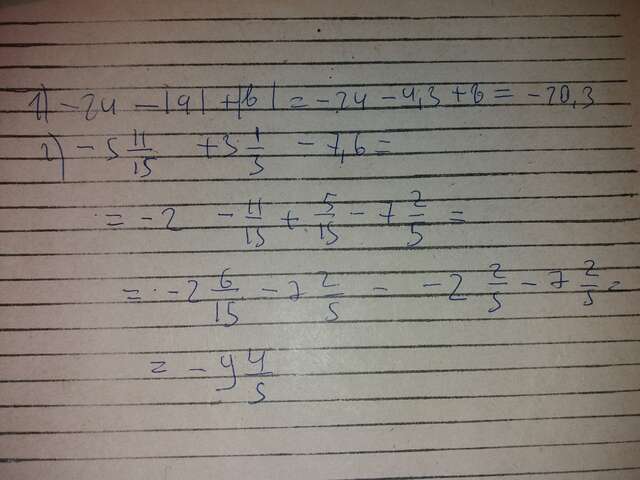 1) -24 - |9| + |6| = -24 - 4,3 + 6 = -20,3
2) -5 11/15 + 3 1/3 - 7,6 =
= -2 - 11/15 + 5/15 - 7 2/5 =
= -2 6/15 - 7 2/5 = -2 2/5 - 7 2/5 =
= -4 4/5